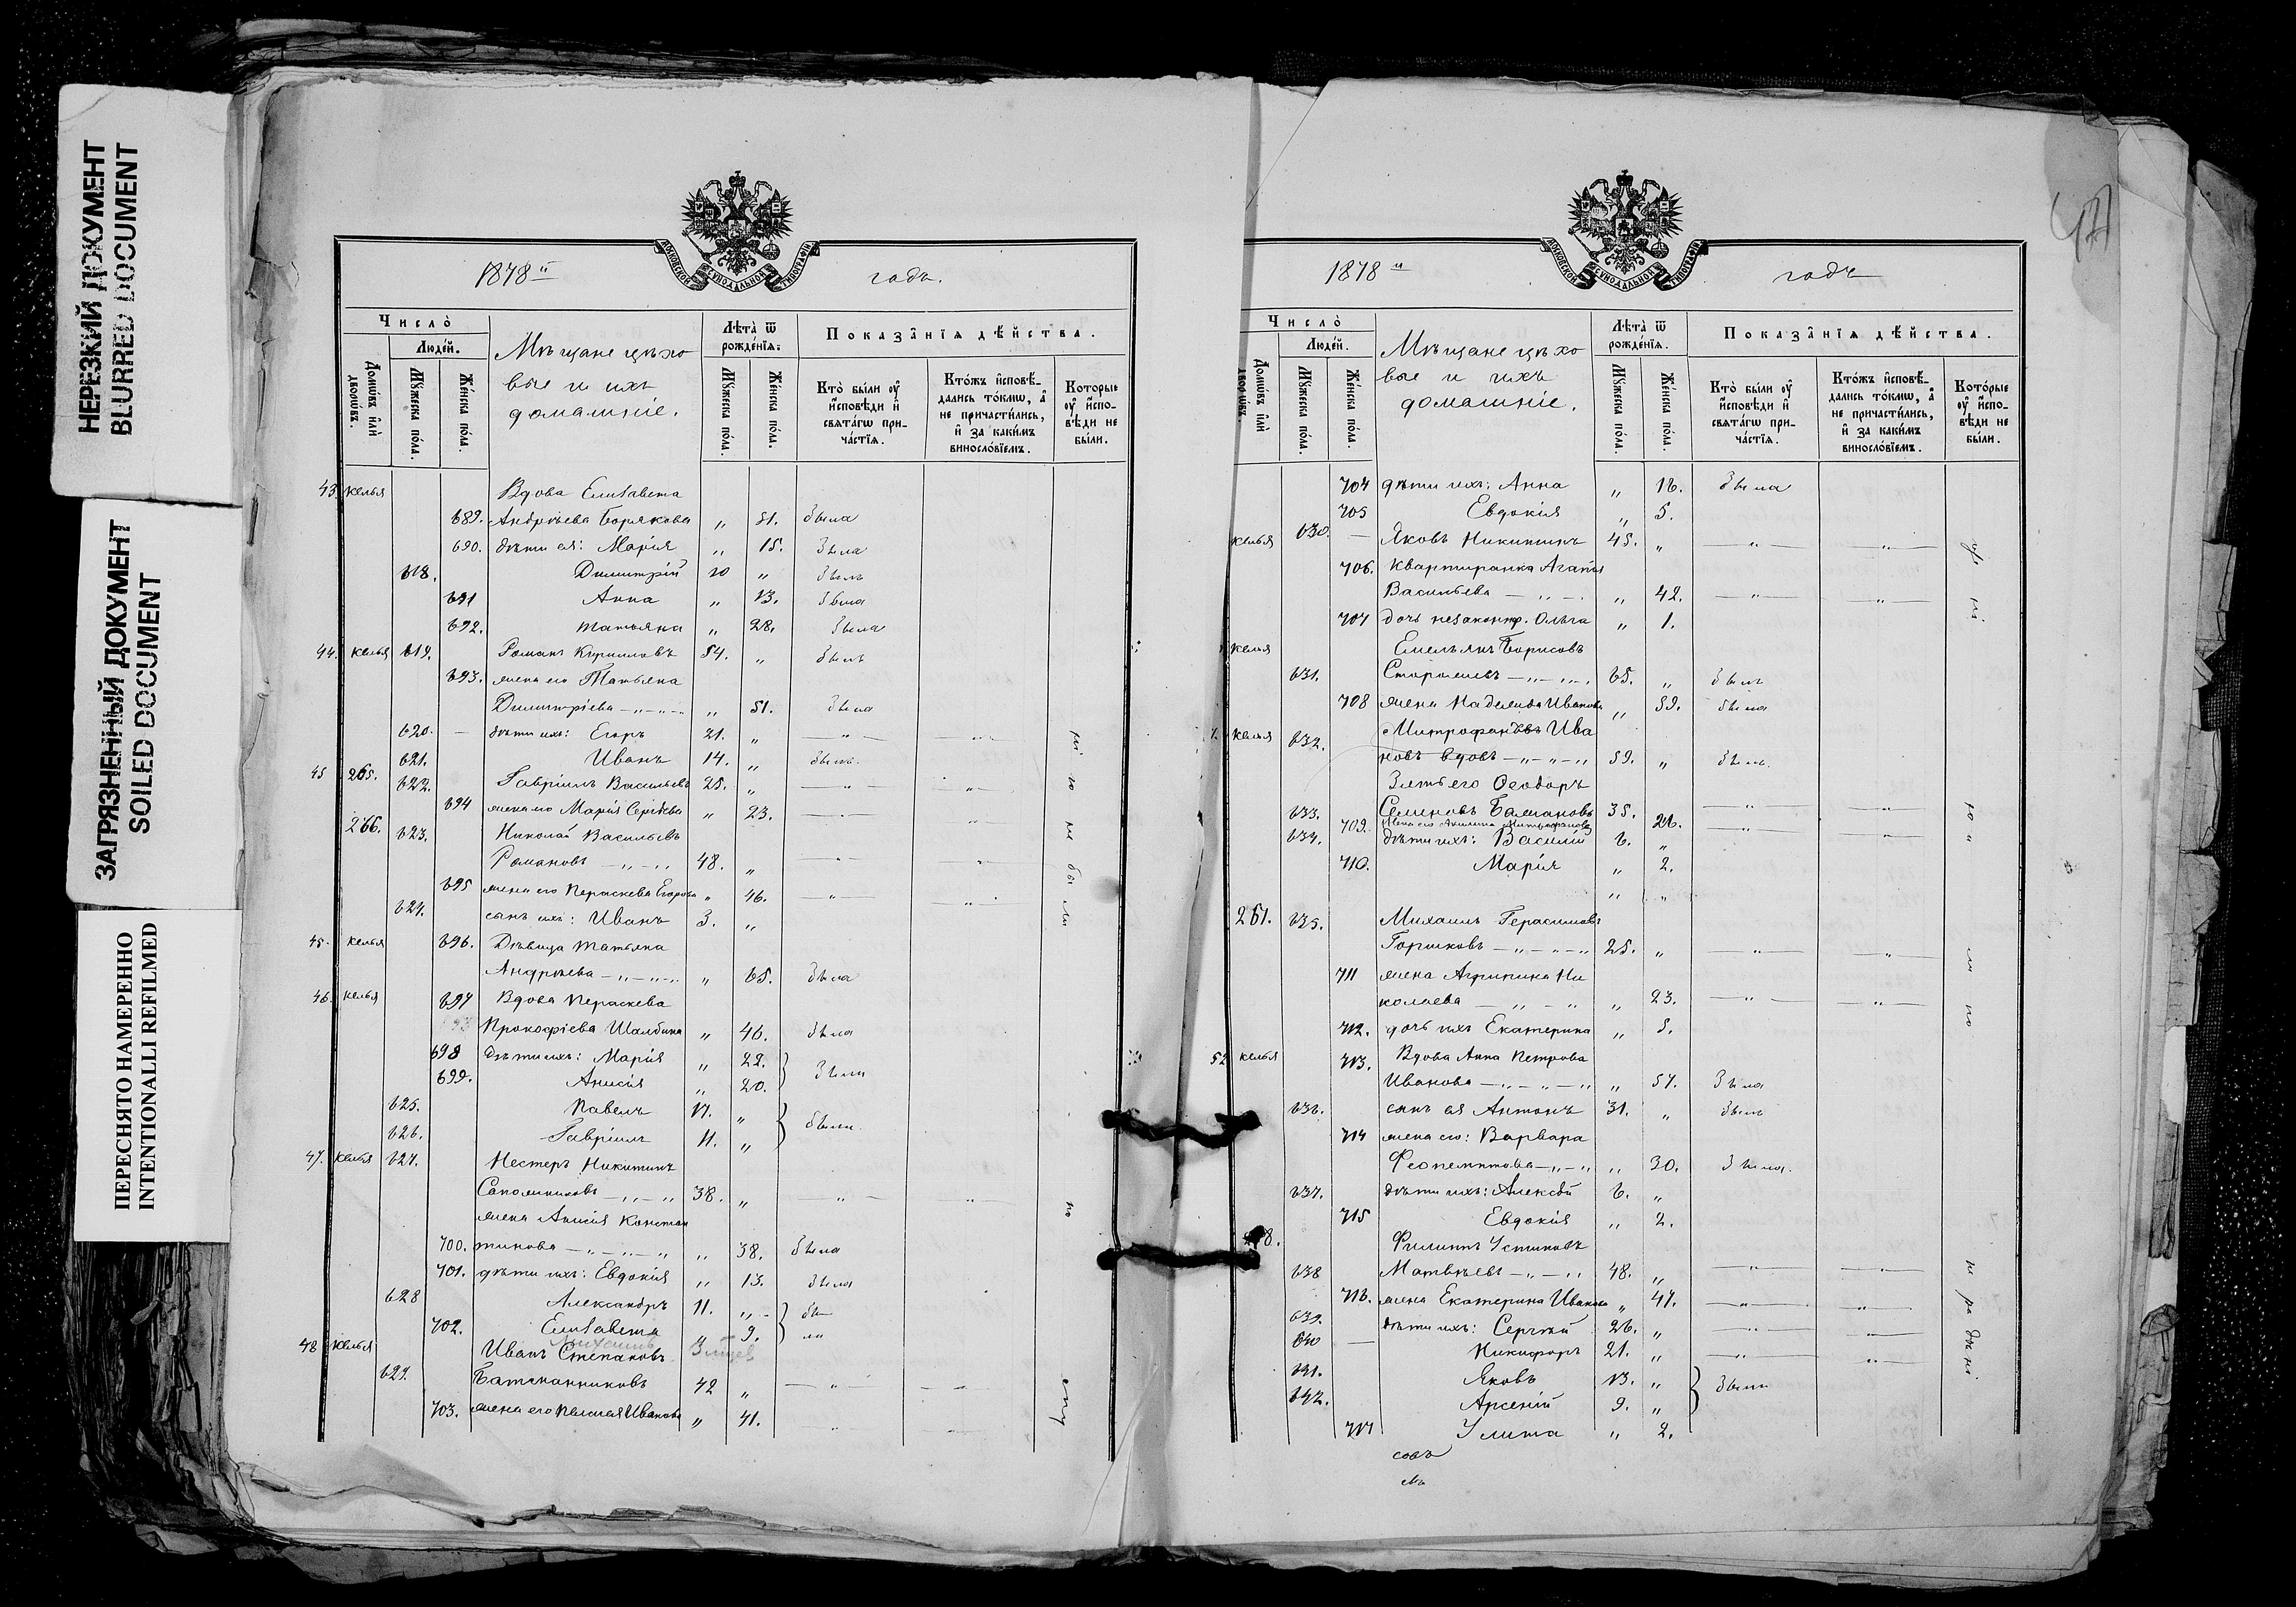 НЕРЕЗКИЙ ДОКУМЕНТ
BLURRED DOCUMENT
ЗАГРЯЗНЕННЫЙ ДОКУМЕНТ
SOILED DOCUMENT
ПЕРЕСНЯТО НАМЕРЕННО
INTENTIONALLI REFILMED
МОСКОВСКОЙ СѴНОДАЛЬНОЙ ТИПОГРАФІИ
1878й годъ.
Число̀
Людей.
Домѡвъ и҆лѝ дворѡвъ.
Мꙋ́жеска по́ла.
Же́нска по́ла.
Мѣщане цѣхо
вые и ихъ
домашніе.
Лѣта̀ ѿ рожде́нїѧ:
Мꙋ́жеска по́ла.
Же́нска по́ла.
Показа̑нїѧ дѣ́йства.
Кто̀ бы́ли ᲂу҆ и҆сповѣди и҆ свѧта́гѡ при-ча́стїѧ.
Кто́жъ и҆сповѣ́-дались то́кмѡ, а҆ не причасти́лись, и҆ за каки́мъ винослóвїемъ.
Кото́рые ᲂу҆ и҆спо-вѣди не бы́ли.
43. келья Вдова Елизавета
689. Андреева Борякова „ 51. была
690. дѣти ея: Марія „ 15. была
618. Димитрій 20 „ былъ
691 Анна „ 13. была
692. Татьяна „ 28. была
44. келья 619. Романъ Кирилловъ 54. „ былъ
693. жена его Татьяна
Димитріева „ 51. была
620. — дѣти ихъ: Егоръ 21. „ — „ —
621. Иванъ 14. „ былъ.
45 265. 622. Гавріилъ Васильевъ 25. „ — „ —
694 жена его Марія Сергѣева „ 23. — „ —
266. 623. Николай Васильевъ
Романовъ — „ — „ 48. „ — „ —
695 жена его Параскева Егорова „ 46. — „ —
624. сынъ ихъ: Иванъ 3. „
45. келья 696. Дѣвица Татьяна
Андреева — „ — „ — „ 65. была
46. келья 697 Вдова Параскева
Прокофіева Шалбина „ 46. была
698 дѣти ихъ: Марія „ 22.
699. Анисія „ 20. } были
625. Павелъ 17. „
626. Гавріилъ 11. „ } были.
47. келья 627. Нестеръ Никитинъ
Сапожниковъ — „ — „ 38. „ — „ —
жена Анисія Констан
700. тинова — „ — „ — „ „ 38. была
701. дѣти ихъ: Евдокія „ 13. была
628 Александръ 11. „ } бы
702. Елизавета „ 9. ли
48 келья Иванъ Степановъ
629. 42 „ — „ —
703. жена его Пелагея Иванова „ 41.
1878й годъ
47
Число̀
Людей.
Домѡвъ и҆лѝ дворѡвъ.
Мꙋ́жеска по́ла.
Же́нска по́ла.
Мѣщане цѣхо
вые и ихъ
домашніе.
Лѣта̀ ѿ рожде́нїѧ.
Мꙋ́жеска по́ла.
Же́нска по́ла.
Показа̑нїѧ дѣ́йства.
Кто̀ бы́ли ᲂу҆ и҆сповѣди и҆ свѧта́гѡ при-ча́стїѧ.
Кто́жъ и҆сповѣ́-дались то́кмѡ, а҆ не причасти́лись, и҆ за каки́мъ винослóвїемъ.
Кото́рые ᲂу҆ и҆спо-вѣди не бы́ли.
704 дѣти ихъ: Анна „ 16. была
705 Евдокія „ 5.
келья 630. — Яковъ Никитинъ 45. „ — „ — — „ —
706. квартирантка Агапія
Васильева — „ — „ 42. — „ — — „ —
707 дочь незаконнр. Ольга „ 1.
келья Емельянъ Борисовъ
631. 65. „ былъ
708 жена Надежда Иванова „ 59. была
келья 632. Митрофанъ Ива
новъ вдовъ — „ — „ — „ 59. „ былъ.
Зять его Ѳеодоръ
633. Семеновъ Балашовъ 35. — „ — — „ —
709. жена его Акилина Митрофанова 26.
634. дѣти ихъ: Василій 6. „
710. Марія „ 2.
261. 635. Михаилъ Герасимовъ
Горшковъ — „ — „ — „ 25. „ — „ — — „ —
711 жена Агрипина Ни
колаева — „ — „ „ 23. — „ — — „ —
712. дочь ихъ Екатерина „ 5.
52 келья 713. Вдова Анна Петрова
Иванова — „ — „ — „ „ 57. была
636. сынъ ея Антонъ 31. „ былъ
714 жена его: Варвара
Феопемптова — „ — „ „ 30. была.
637. дѣти ихъ: Алексѣй 6. „
715 Евдокія „ 2.
Филиппъ Устиновъ
638 Матвѣевъ — „ — „ 48. „ — „ — — „ —
716. жена Екатерина Иванова „ 47. — „ — — „ —
639. дѣти ихъ: Сергѣй 26. „ — „ — — „ —
640 — Никифоръ 21. „ — „ — — „ —
641. Яковъ 13. „
642. Арсеній 9. „ } были
717 Улита „ 2.